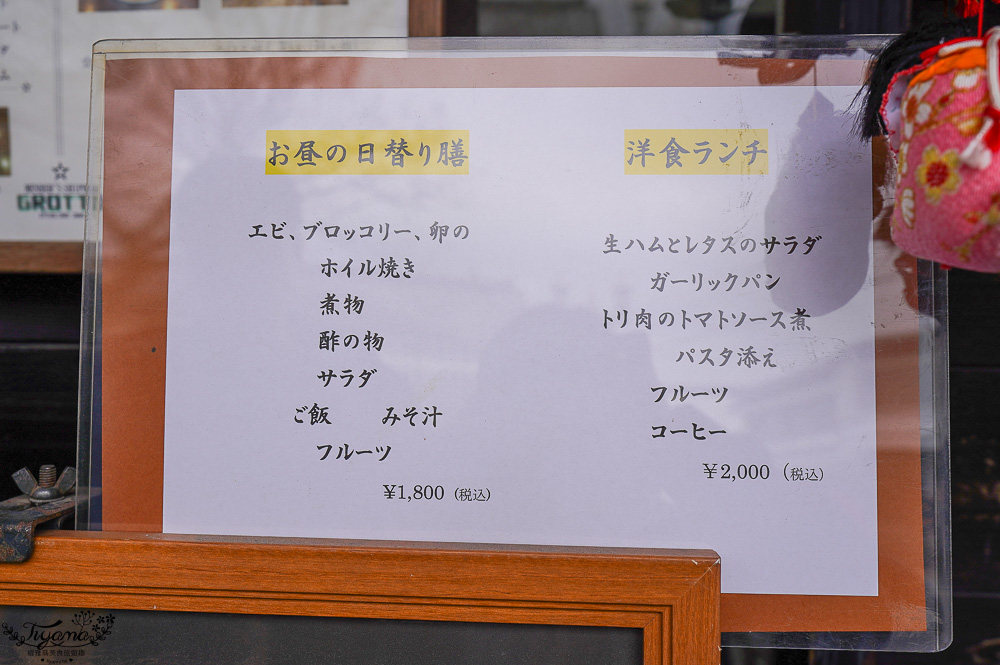 お昼の日替り膳
エビ、ブロッコリー、卵の
ホイル焼き
煮物
酢の物
サラダ
ご飯 みそ汁
フルーツ
¥1,800 (税込)
洋食ランチ
生ハムとレタスのサラダ
ガーリックパン
トリ肉のトマトソース煮
パスタ添え
フルーツ
コーヒー
¥2,000 (税込)
GROTTO
Tiyama